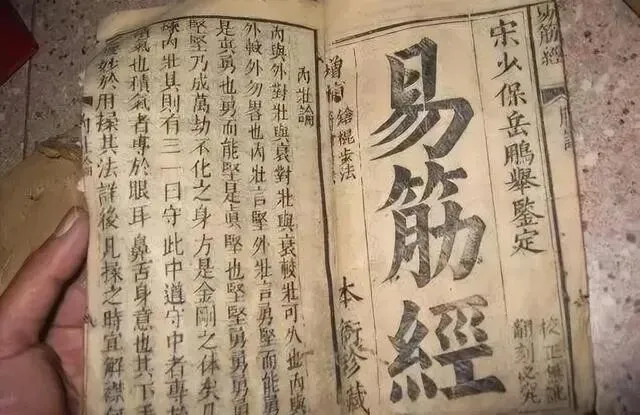 易筋經
宋少保岳鵬舉鑒定
校正無訛
翻刻必究
易筋經
增補
棍步法
本衙珍藏
內壯論
內與外對壯與衰對壯與衰較壯可久也內與
外較外勿畧也內壯言堅外壯言勇堅而能勇
是真勇也勇而能堅是真堅也堅堅勇勇勇勇
堅堅乃成萬劫不化之身方是金剛之体矣凡
內壯其則有三一曰守此中道守中者專
積氣也積氣者專於眼耳鼻舌身意也其下手
妙於用揉其法詳後凡揉之時宜解襟仰
內壯論